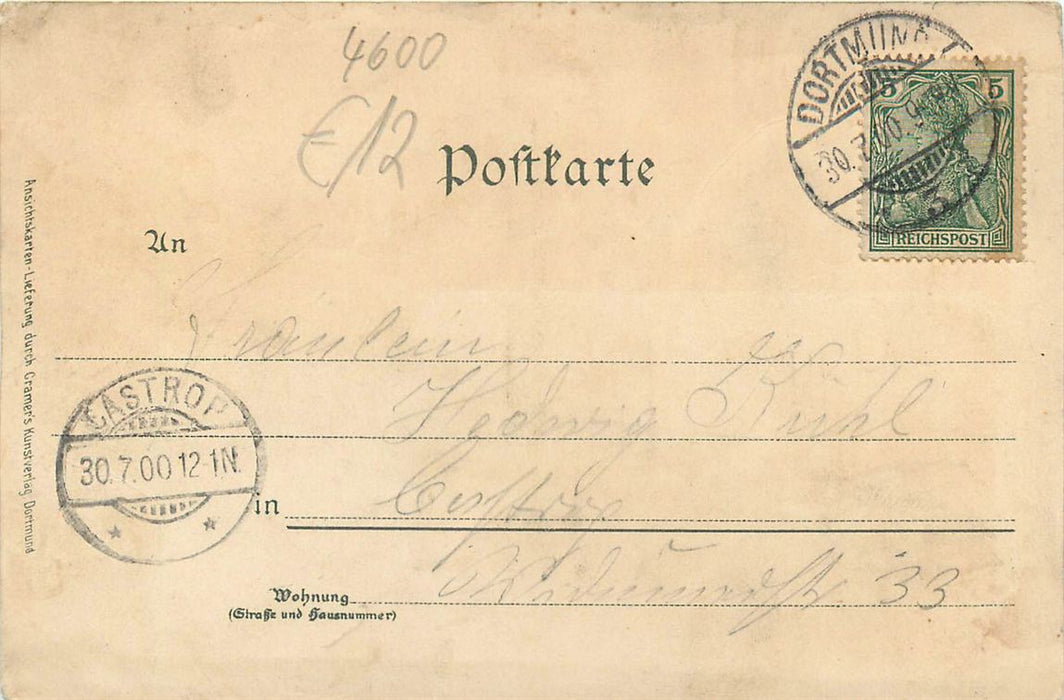 4600
€/12
Postkarte
DORTMUND
30.7.00.9
5 5
REICHSPOST
An
Fräulein
Hedwig Kühl
CASTROP
30.7.00 12-1N.
in Castrop
Wohnung
(Straße und Hausnummer)
33
Ansichtskarten-Lieferung durch Cramer's Kunstverlag Dortmund